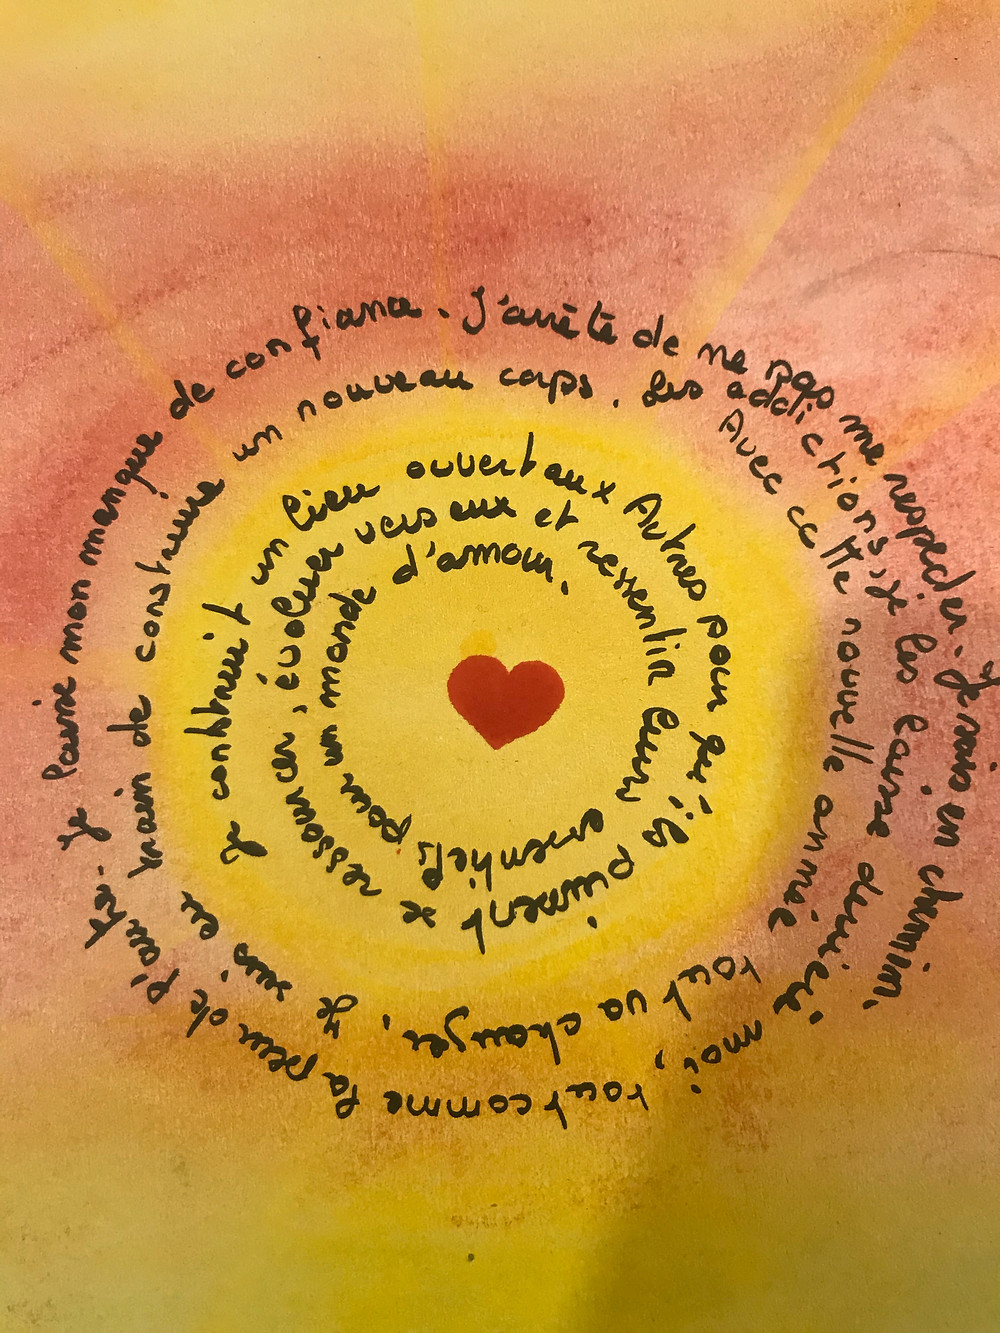 Je laisse mon manque de confiance. J'arrête de ne pas me respecter. Je suis en chemin.
Les addictions, je les laisse derrière moi, tout comme la peur de l'autre.
Je suis en train de construire un nouveau corps.
Avec cette nouvelle année tout va changer,
Je construit un lieu ouvert aux Autres pour qu'ils puissent se ressourcer, évoluer vers eux et ressentir leurs essentiels, pour un monde d'amour.